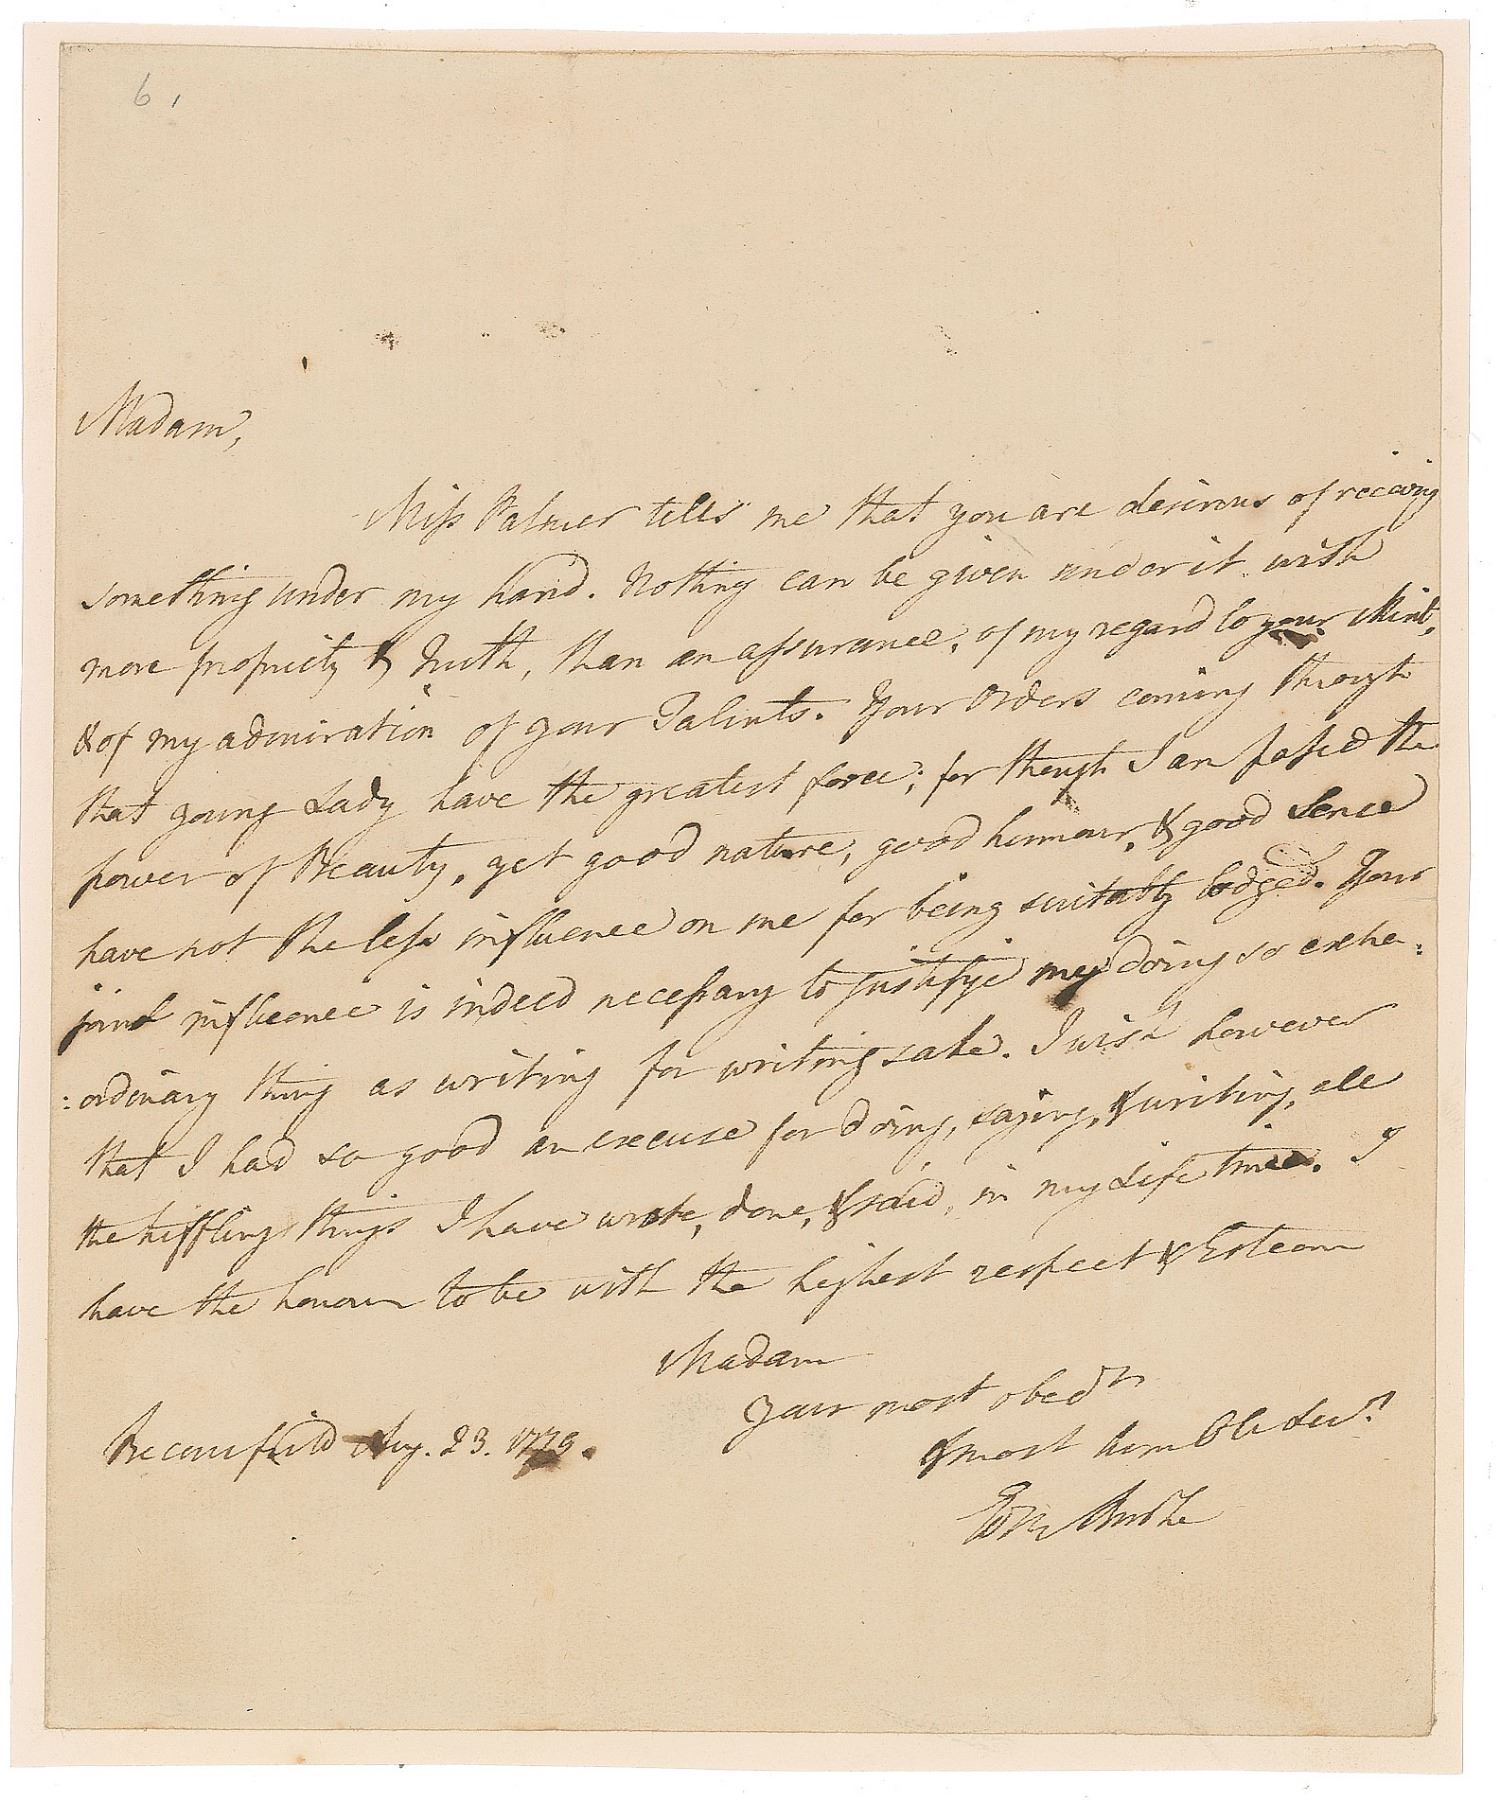 6,
Madam,
Miss Palmer tells me that you are desirous of receiving
something under my hand. Nothing can be given under it with
more propriety & Truth, than an assurance, of my regard to your Merit,
& of my admiration of your Talents. Your Orders coming through
that young Lady have the greatest force; for though I am passed the
power of Beauty, yet good nature, good humour, & good Sence
have not the less influence on me for being suitably lodged. Your
joint influence is indeed necessary to justifye my doing so extra:
:ordinary thing as writing for writing sake. I wish however
that I had so good an excuse for doing, saying, & writing, all
the triffling things I have wrote, done, & said, in my Life time. I
have the honour to be with the highest respect & Esteem
Madam
Your most obedt
& most humble Servt
Beconsfield Aug. 23. 1779.
Edm Burke